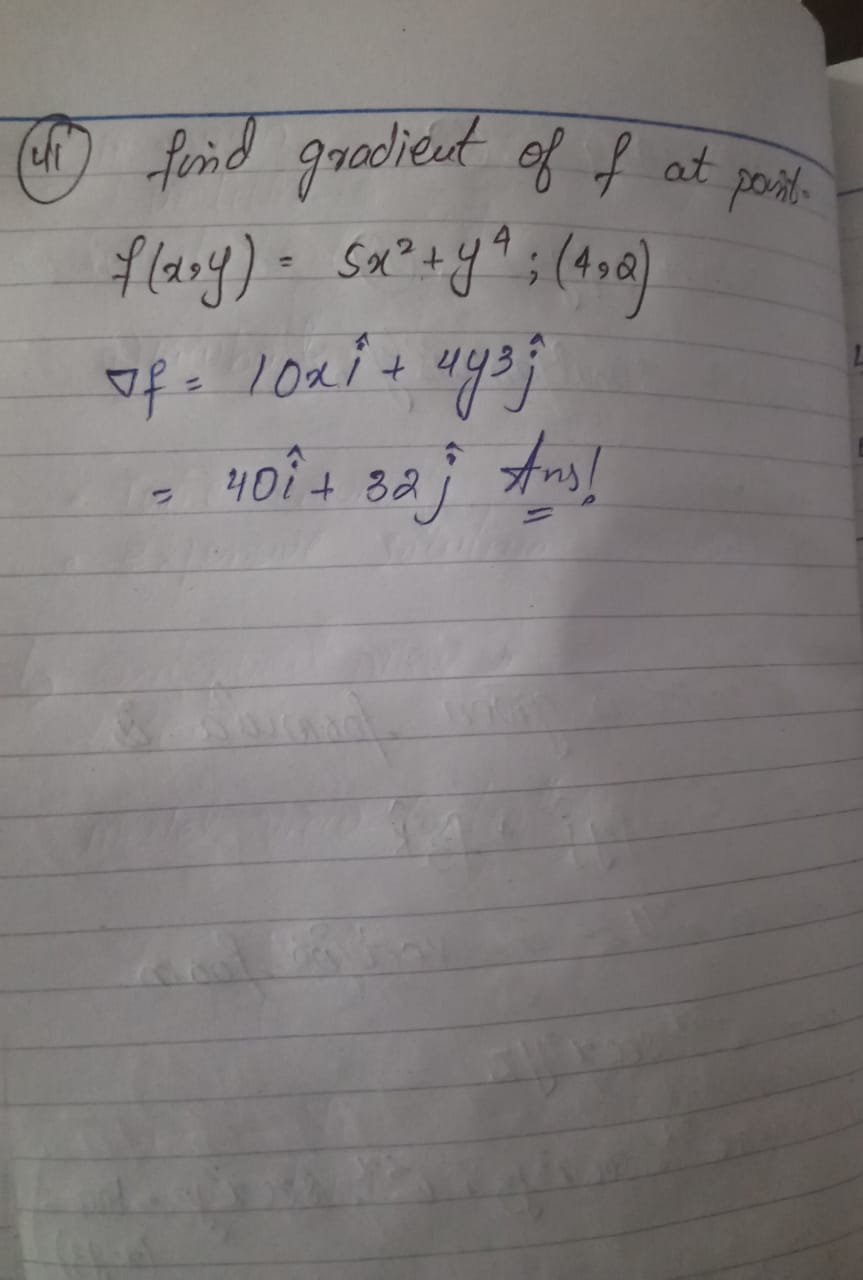 41 find gradient of f at point.
f(x,y) = 5x² + y⁴ ; (4,2)
∇f = 10x î + 4y3 ĵ
= 40î + 32ĵ Ans!